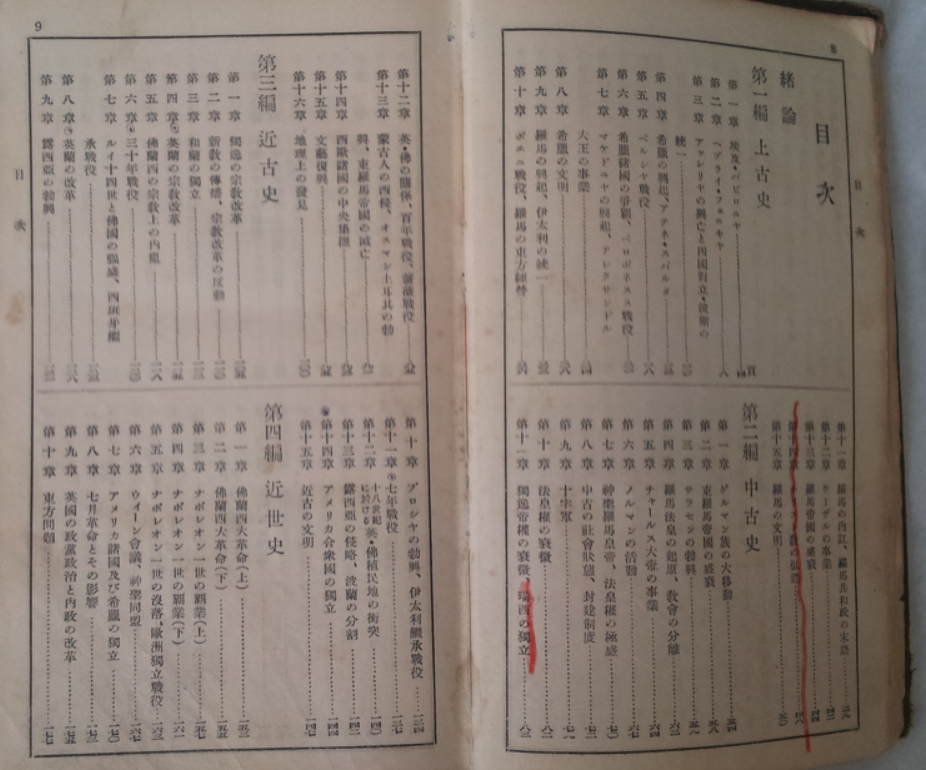 8
目次
目次
緒論
第一編 上古史
第一章 埃及・バビロニヤ
第二章 ヘブライ・フェニキヤ
第三章 アッシリヤの興亡と四國對立・波斯の
統一
第四章 希臘の興起、アテネ・スパルタ
第五章 ペルシヤ戰役
第六章 希臘諸國の爭覇、ペロポネスス戰役
第七章 マケドニヤの興起、アレクサンドル
大王の事業
第八章 希臘の文明
第九章 羅馬の興起、伊太利の統一
第十章 ポエニ戰役、羅馬の東方經營
第十一章 羅馬の内訌、羅馬共和政の末路
第十二章 ケーザルの事業
第十三章 羅馬帝國の盛衰
第十四章
第十五章 羅馬の文明
第二編 中古史
第一章 ゲルマン族の大移動
第二章 東羅馬帝國の盛衰
第三章 サラセンの勃興
第四章 羅馬法皇の起原、敎會の分離
第五章 チャールス大帝の事業
第六章 ノルマンの活動
第七章 神聖羅馬皇帝、法皇權の極盛
第八章 中古の社會狀態、封建制度
第九章 十字軍
第十章 法皇權の衰微
第十一章 獨逸帝權の衰微、瑞西の獨立
9
目次
第十二章 英・佛の關係、百年戰役、薔薇戰役
第十三章 蒙古人の西侵、オスマン土耳其の勃
興、東羅馬帝國の滅亡
第十四章 西歐諸國の中央集權
第十五章 文藝復興
第十六章 地理上の發見
第三編 近古史
第一章 獨逸の宗敎改革
第二章 新敎の傳播、宗敎改革の反動
第三章 和蘭の獨立
第四章 英蘭の宗敎改革
第五章 佛蘭西の宗敎上の内亂
第六章 三十年戰役
第七章 ルイ十四世と佛國の强盛、西班牙繼
承戰役
第八章 英蘭の改革
第九章 露西亞の勃興
第十章 プロシヤの勃興、伊太利繼承戰役
第十一章 七年戰役
第十二章 十八世紀に於ける英・佛植民地の衝突
第十三章 露西亞の侵略、波蘭の分割
第十四章 アメリカ合衆國の獨立
第十五章 近古の文明
第四編 近世史
第一章 佛蘭西大革命(上)
第二章 佛蘭西大革命(下)
第三章 ナポレオン一世の覇業(上)
第四章 ナポレオン一世の覇業(下)
第五章 ナポレオン一世の沒落、歐洲獨立戰役
第六章 ウィーン會議、神聖同盟
第七章 アメリカ諸國及び希臘の獨立
第八章 七月革命とその影響
第九章 英國の政黨政治と内政の改革
第十章 東方問題